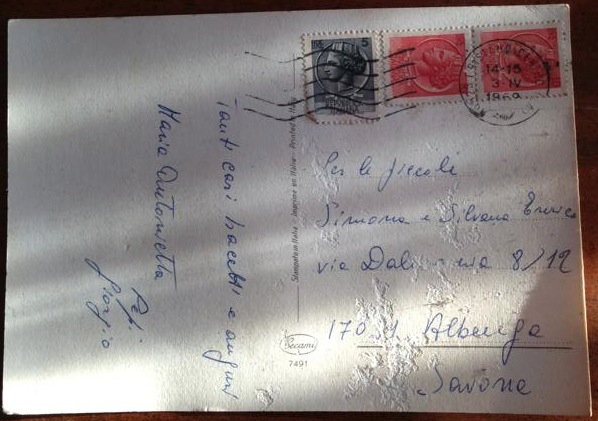 Tanti cari bacetti e auguri
Maria Antonietta
Giorgio
Per le piccole
Simona e Silvana Enrico
via Dalmazia 8/12
17031 Albenga
Savona
14-15
3-IV
1969
5
Stampato in Italia - Imprimé en Italie - Printed in Italy
Cecami
7491